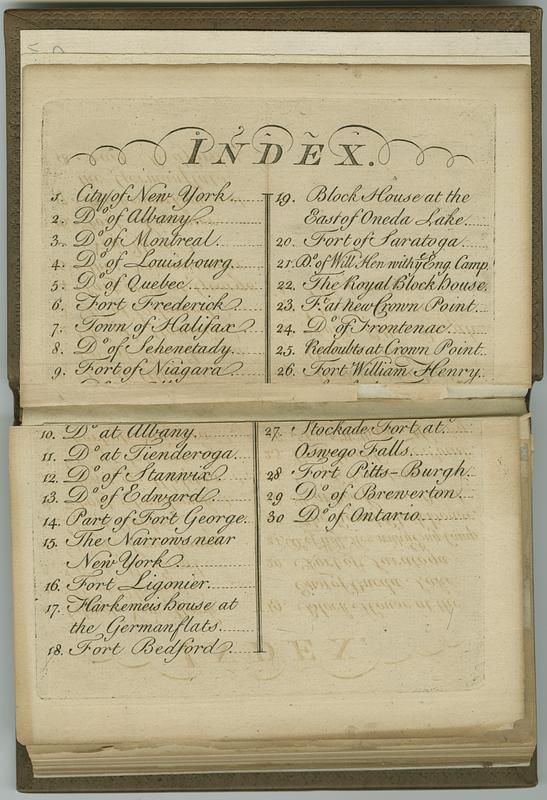 INDEX.
1. City of New York.
2. Do. of Albany.
3. Do. of Montreal.
4. Do. of Louisbourg.
5. Do. of Quebec.
6. Fort Frederick.
7. Town of Halifax.
8. Do. of Sehenetady.
9. Fort of Niagara.
10. Do. at Albany.
11. Do. at Tienderoga.
12. Do. of Stanwix.
13. Do. of Edward.
14. Part of Fort George.
15. The Narrows near
New York.
16. Fort Ligonier.
17. Harkemeis house at
the Germanflats.
18. Fort Bedford.
19. Block House at the
East of Oneda Lake.
20. Fort of Saratoga.
21. Do. of Will. Hen. with ye. Eng. Camp.
22. The Royal Block house.
23. Ft. at new Crown Point.
24. Do. of Frontenac.
25. Redoubts at Crown Point.
26. Fort William Henry.
27. Stockade Fort at
Oswego Falls.
28 Fort Pitts-Burgh.
29 Do. of Brewerton.
30 Do. of Ontario.